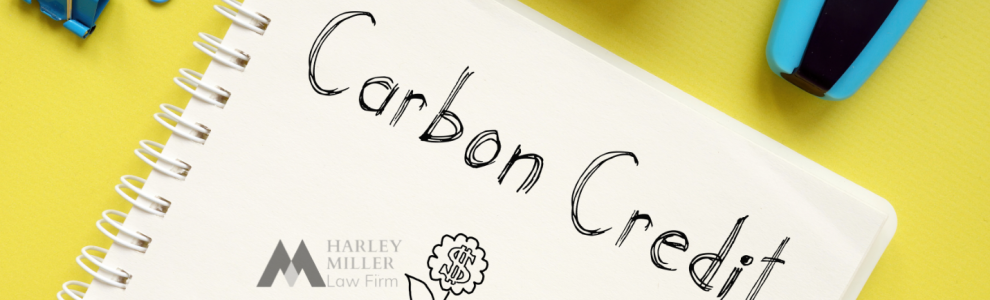 Carbon Credit
HARLEY
MILLER
Law Firm
$